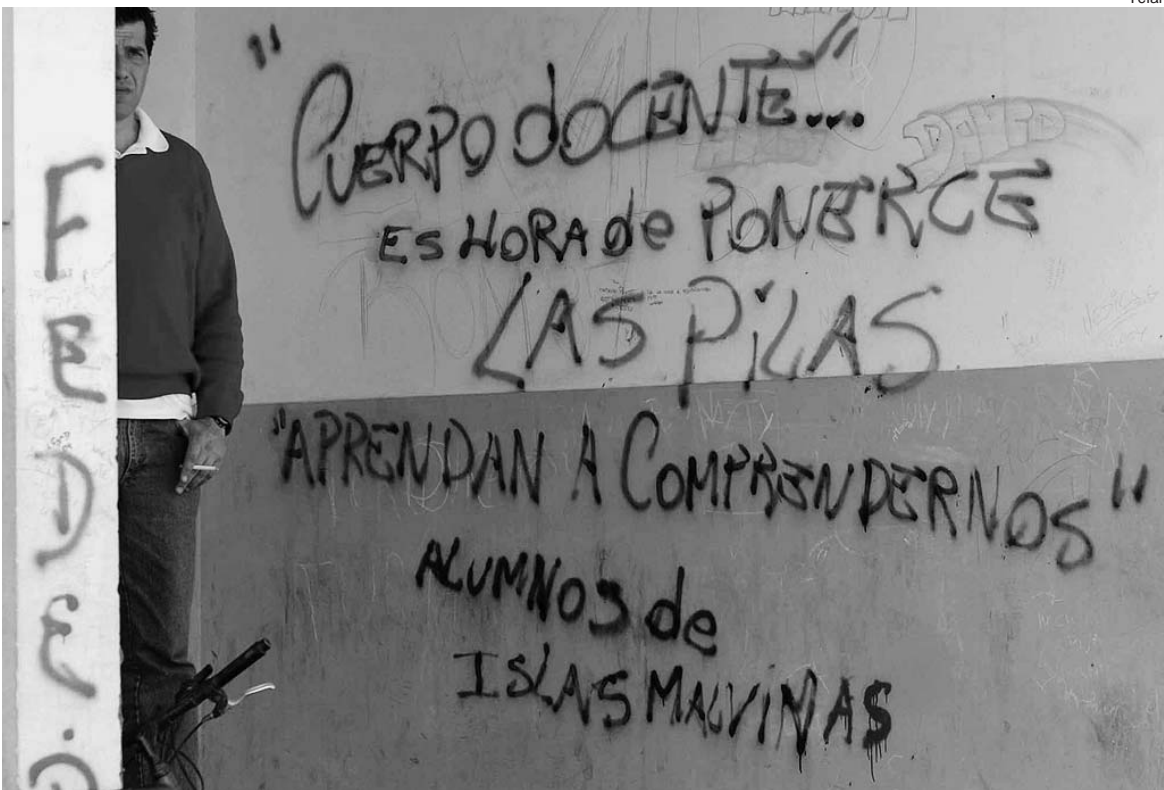 "CUERPO dOCENTE..."
ES HORA de PONERCE
LAS PiLAS
"APRENDAN A COMPRENDERNOS"
ALUMNOS de
ISLAS MALViNAS
FEDE.
DAVID
NAZTY